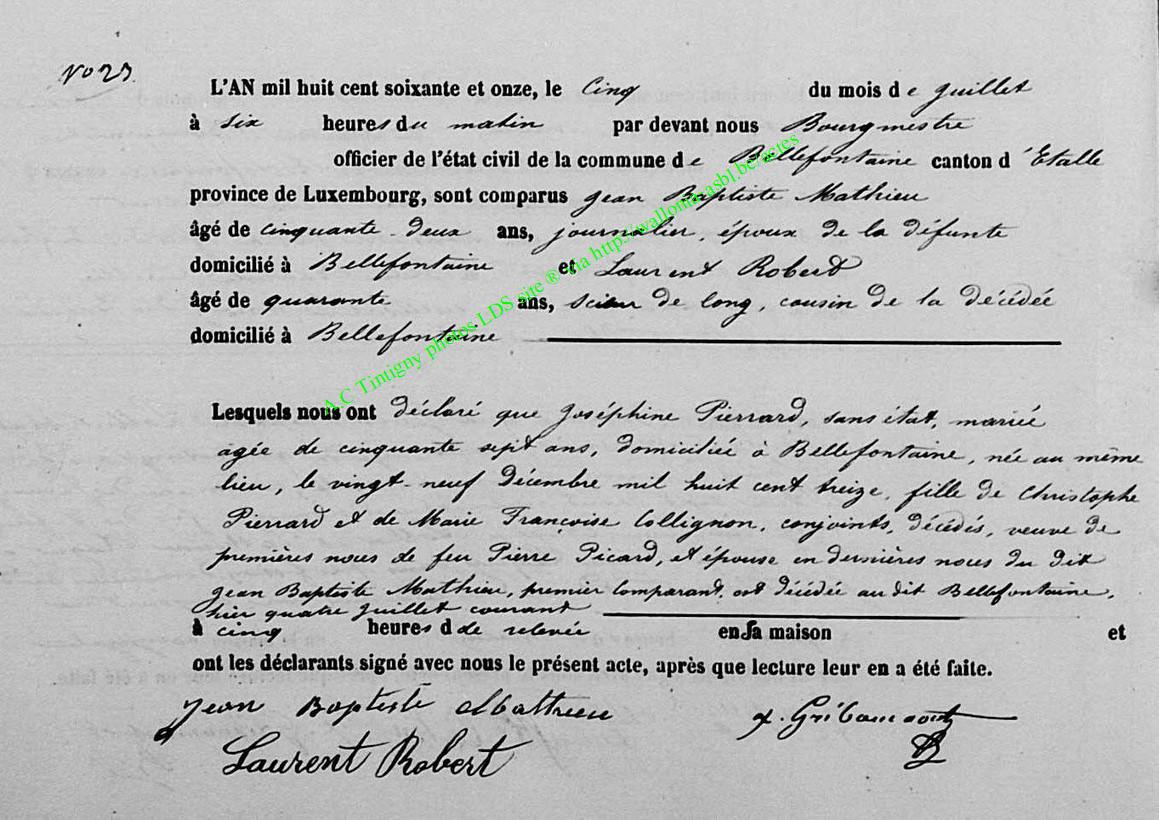 No 23
L'AN mil huit cent soixante et onze, le Cinq du mois de Juillet
à six heures du matin par devant nous Bourgmestre
officier de l'état civil de la commune de Bellefontaine canton d'Etalle
province de Luxembourg, sont comparus Jean Baptiste Mathieu
âgé de cinquante-deux ans, journalier, époux de la défunte
domicilié à Bellefontaine et Laurent Robert
âgé de quarante ans, scieur de long, cousin de la décédée
domicilié à Bellefontaine
A.C Tintigny photos LDS site ® via http://wallonia-asbl.be/actes
Lesquels nous ont déclaré que Joséphine Pierrard, sans état, mariée
agée de cinquante sept ans, domiciliée à Bellefontaine, née au même
lieu, le vingt-neuf Décembre mil huit cent treize, fille de Christophe
Pierrard et de Marie Françoise Collignon, conjoints, décédés, veuve de
premières noces de feu Pierre Picard, et épouse en dernières noces du dit
Jean Baptiste Mathieu, premier comparant, est décédée au dit Bellefontaine,
hier quatre Juillet courant
à cinq heures d de relevée en sa maison et
ont les déclarants signé avec nous le présent acte, après que lecture leur en a été faite.
Jean Baptiste Mathieu
Laurent Robert